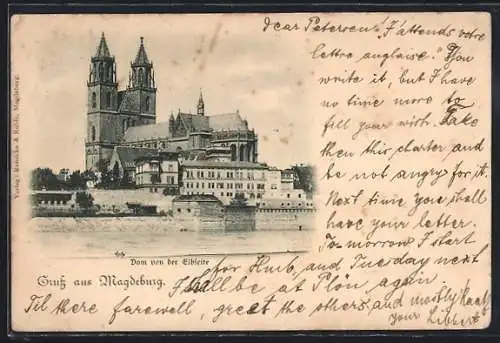 Verlag: Reinicke & Rubin, Magdeburg.
Dear Petersen! J'attends votre
lettre anglaise." You
write it, but I have
no time more to
full your wish. Take
then this, charter and
be not angry for it.
Next time you shall
have your letter.
To-morrow I start
for Hub, and Tuesday next
I shall be at Plön again.
Til there farewell, great the others, and mostly
your
Dom von der Elbseite
Gruß aus Magdeburg.